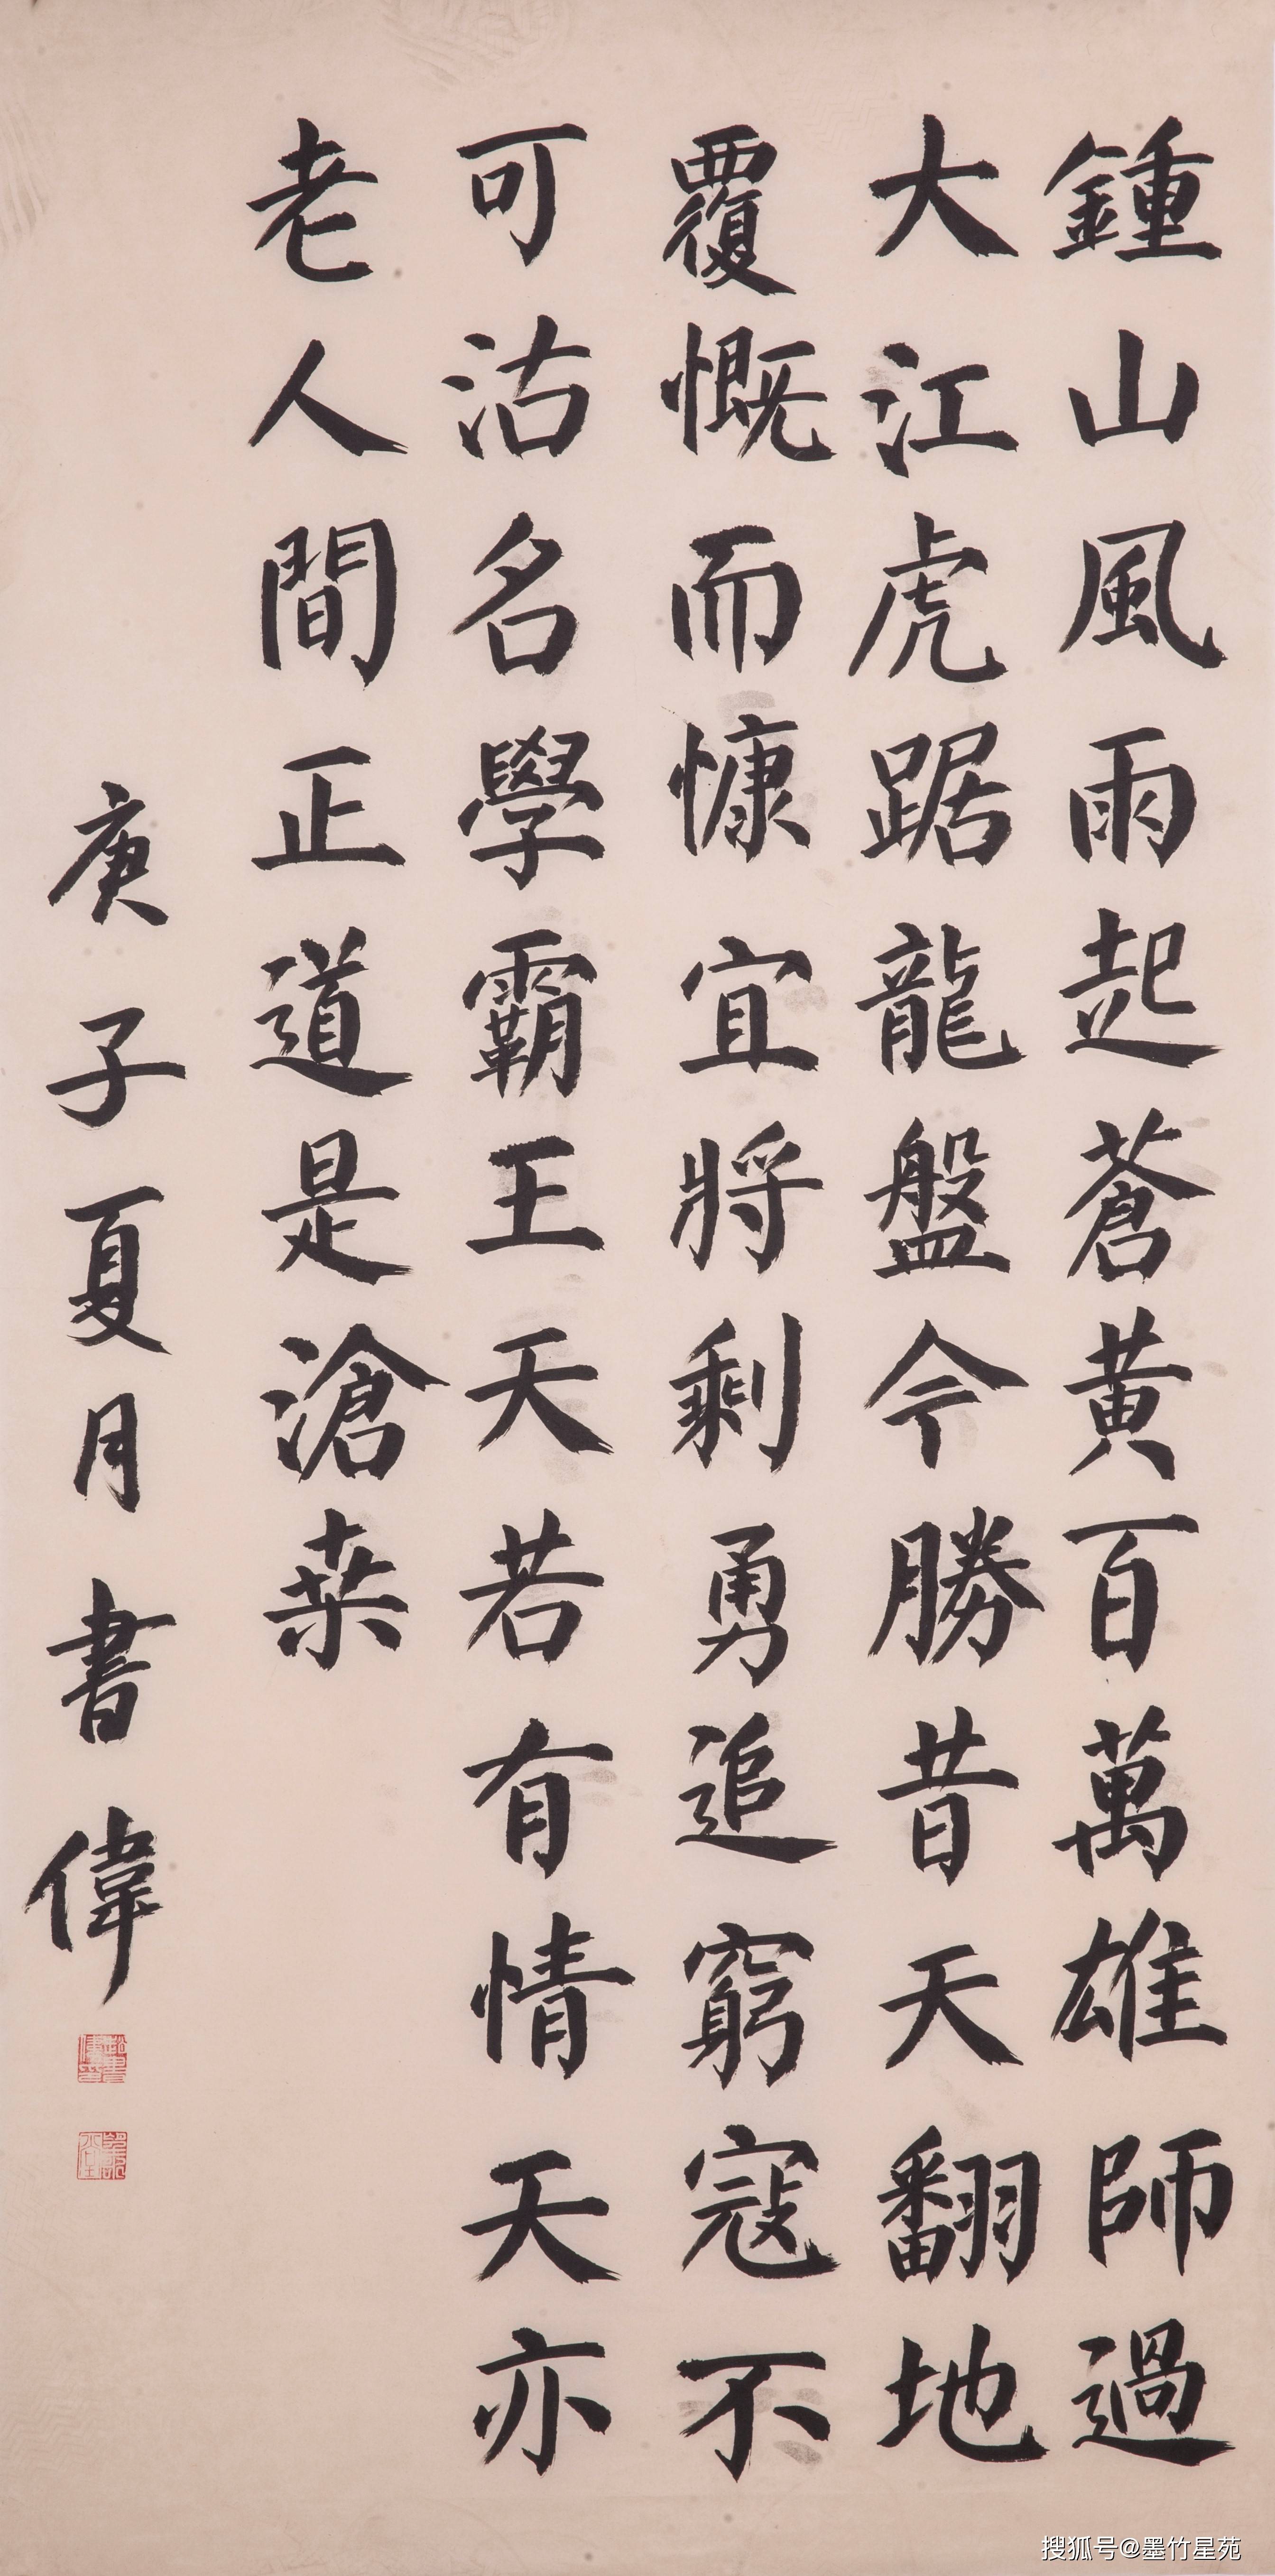 鍾山風雨起蒼黃百萬雄師過
大江虎踞龍盤今勝昔天翻地
覆慨而慷宜將剩勇追窮寇不
可沽名學霸王天若有情天亦
老人間正道是滄桒
庚子夏月書偉
搜狐号@墨竹星苑